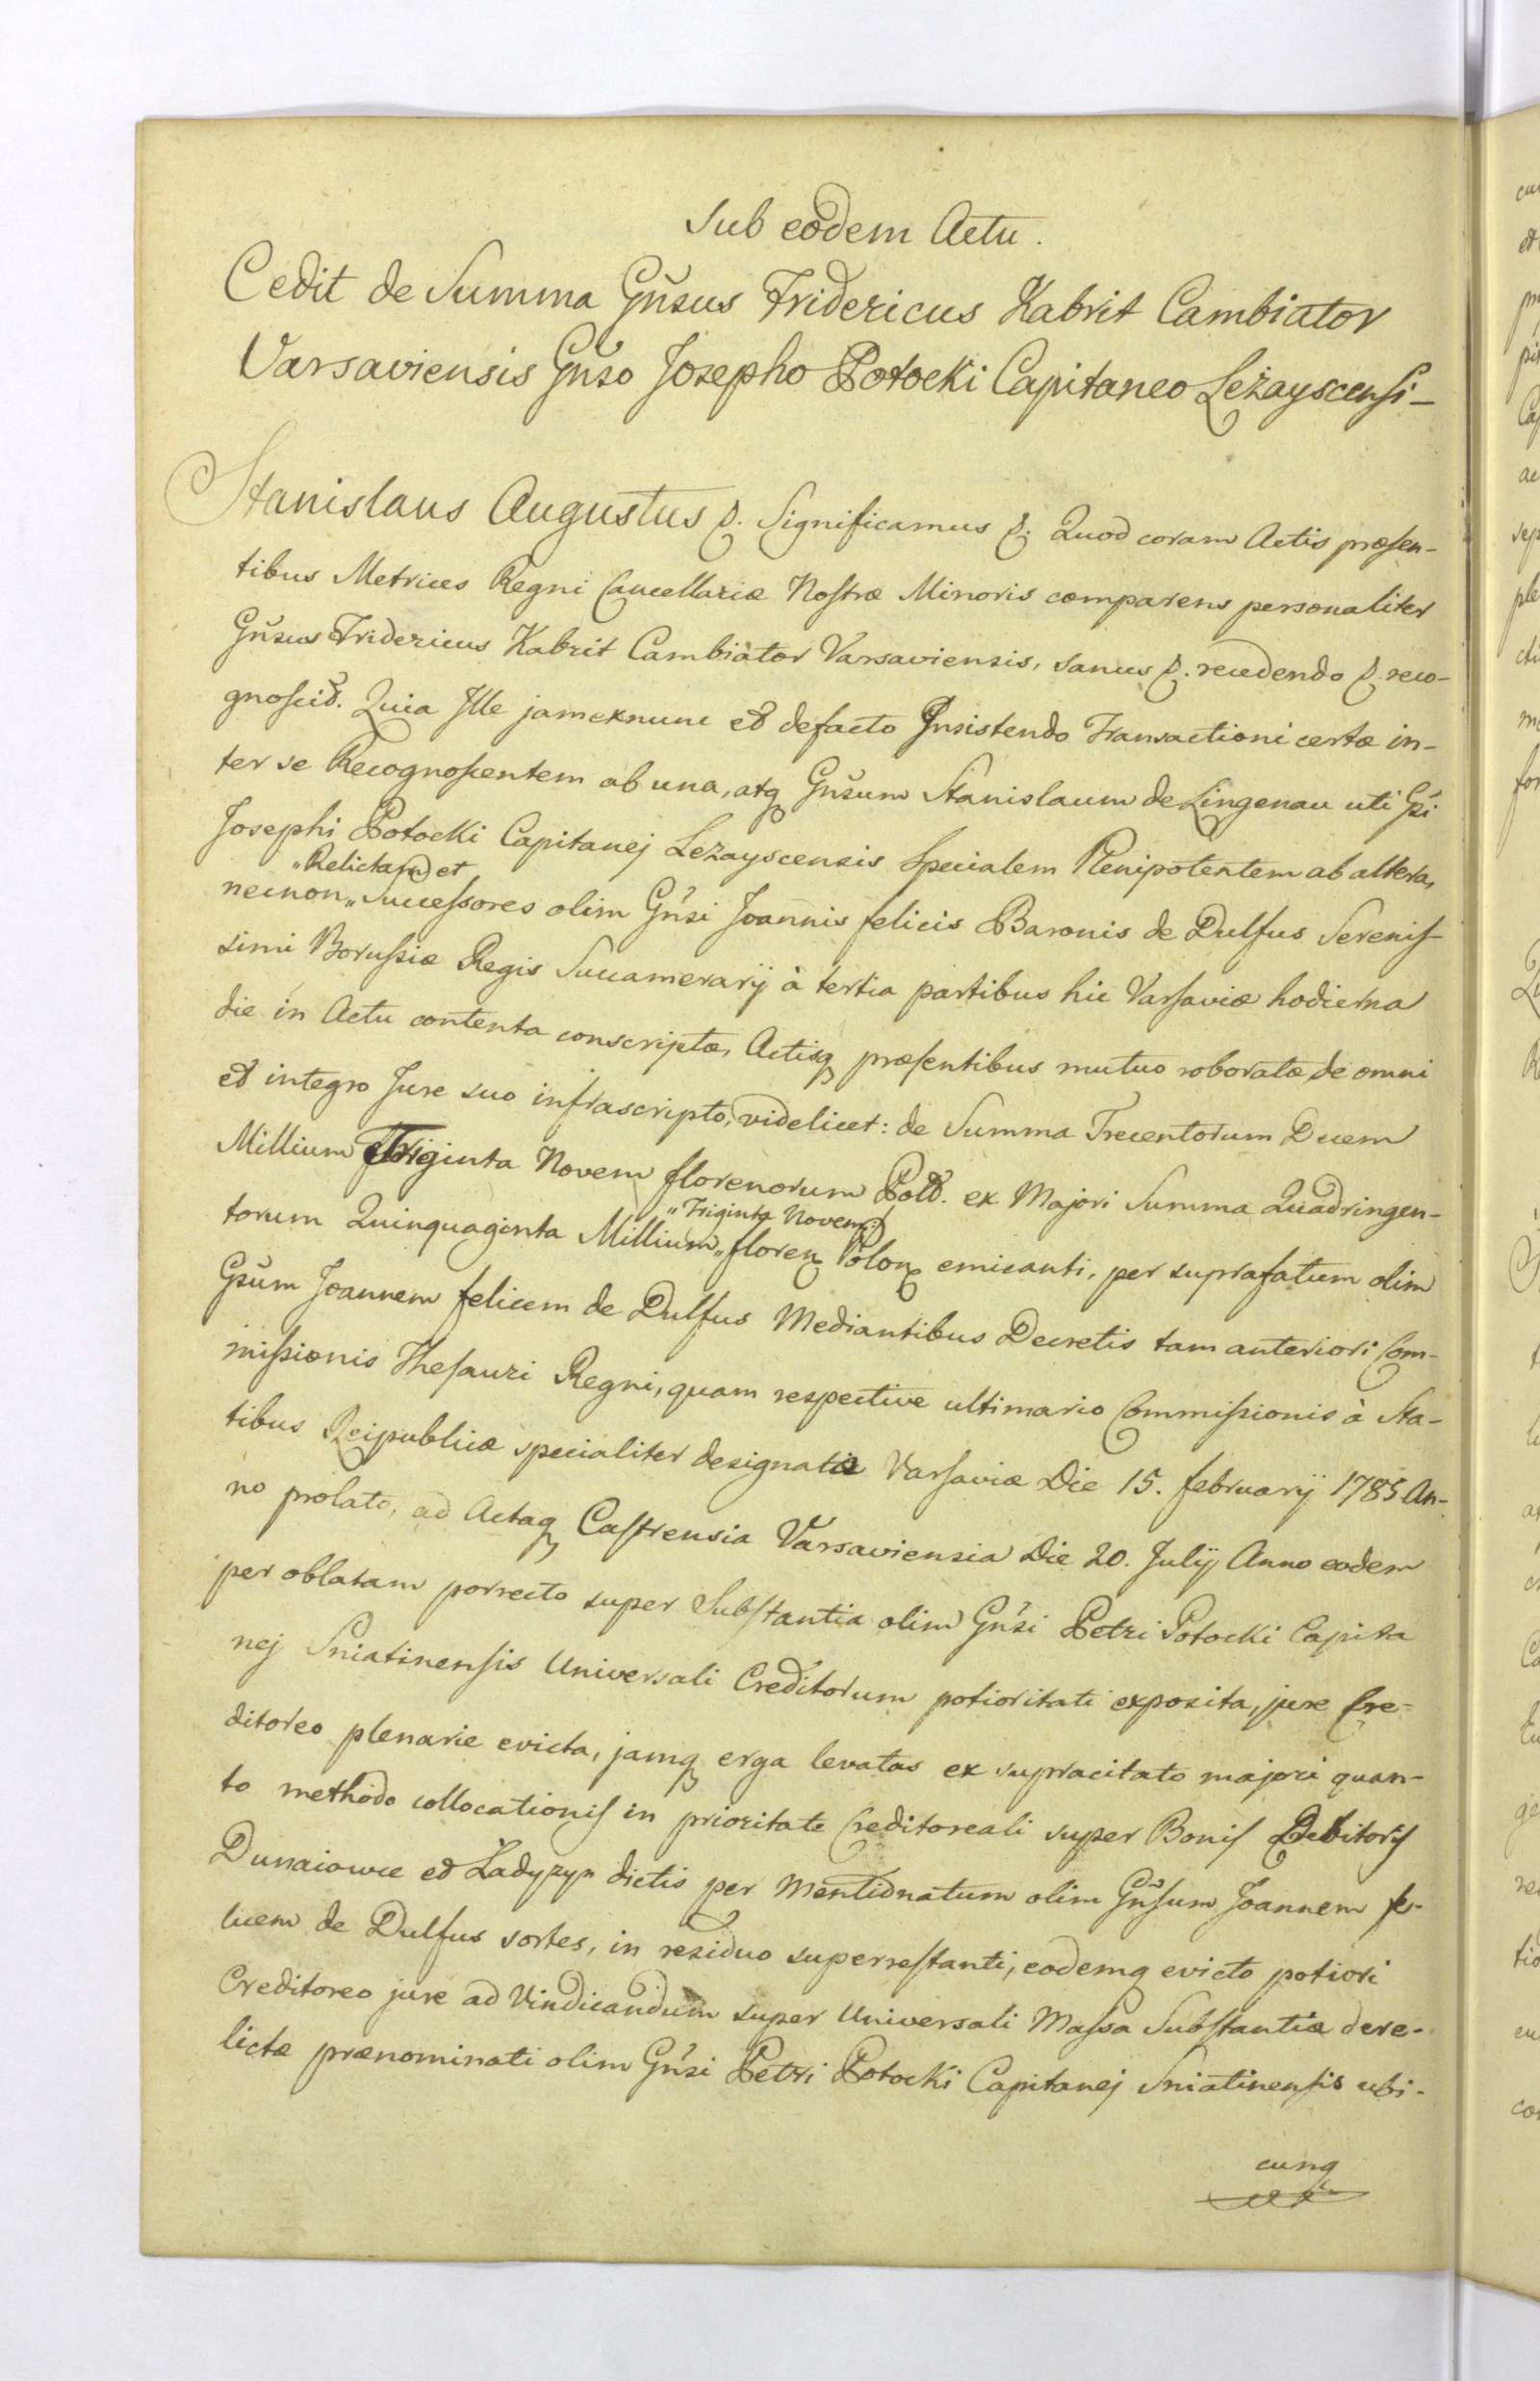 Sub eodem Actu.
Cedit de Summa Gn̆sus Fridericus Kabrit Cambiator
Varsaviensis Gn̆so Josepho Potocki Capitaneo Leżayscensi
Stanislaus Augustus &. Significamus &. Quod coram Actis præsen-
tibus Metrices Regni Cancellariæ Nostræ Minoris comparens personaliter
Gn̆sus Fridericus Kabrit Cambiator Varsaviensis, sanus &. recedendo &. reco-
gnoscid. Quia Ille jamexnunc et defacto Insistendo Transactioni certæ in-
ter se Recognoscentem ab una, atq Gn̆sum Stanislaum de Lingenau uti Gsi
Josephi Potocki Capitanej Lezayscensis Specialem Plenipotentem ab altera,
„Relictam et
necnon „ Successores olim Gn̆si Joannis felicis Baronis de Dulfus Serenis-
simi Borussiæ Regis Succamerarij à tertia partibus hic Varsaviæ hodierna
die in Actu contenta conscriptæ, Actisq præsentibus mutuo roboratæ de omni
et integro Jure suo infrascripto, videlicet: de Summa Trecentorum Decem
Millium Triginta Novem florenorum Pold. ex Majori Summa Quadringen-
„Triginta Novem
torum Quinquaginta Millium „ floren Polon emicanti, per suprafatum olim
Gsŭm Joannem felicem de Dulfus Mediantibus Decretis tam anteriori Com-
missionis Thesauri Regni, quam respective ultimario Commissionis à Sta-
tibus Reipublicæ specialiter designatæ Varsaviæ Die 15. february 1785 An-
no prolato, ad Actaq Castrensia Varsaviensia Die 20. Julij Anno eodem
per oblatam porrecto super Substantia olim Gn̆si Petri Potocki Capita
nej Sniatinensis Universali Creditorum potioritati exposita, jure Cre-
ditoreo plenarie evicta, jamq erga levatas ex supracitato majori quan-
to methodo collocationis in prioritate Creditoreali super Bonis Debitoris
Dunaiowce et Ladyzyn dictis per Mentionatum olim Gn̆sum Joannem fe-
licem de Dulfus sortes, in residuo superrestanti, eodemq evicto potiori
Creditoreo jure ad Vindicandum super Universali Massa Substantiæ dere-
lictæ prænominati olim Gn̆si Petri Potocki Capitanej Sniatinensis ubi-
cunq